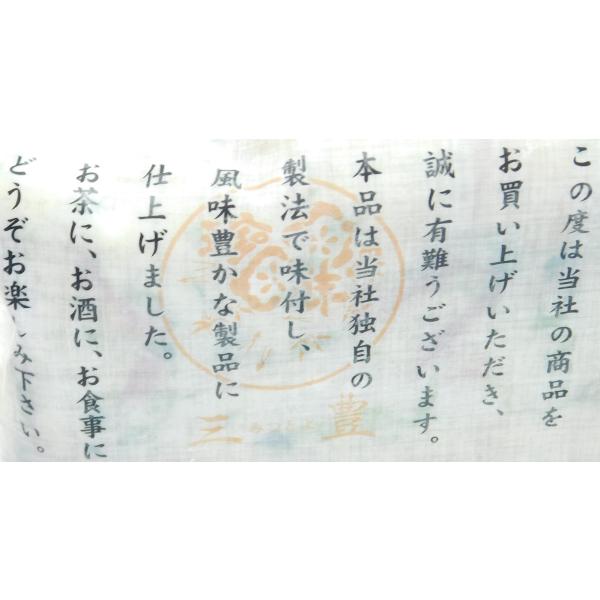 この度は当社の商品を
お買い上げいただき、
誠に有難うございます。
本品は当社独自の
製法で味付し、
風味豊かな製品に
仕上げました。
お茶に、お酒に、お食事に
どうぞお楽しみ下さい。
三豊